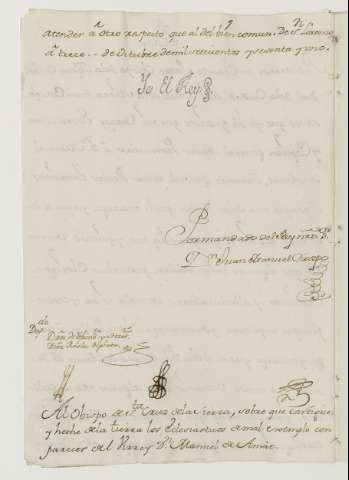 atender â otro respeto que al del bien comun. De Sn. Lorenzo
â trece de Octubre de mil setecientos y sesenta y uno.
Yo El Rey
Por mandado del Rey nro. Sr.
Dn. Juan Manuel Crespo
Dup.do
Al Obispo de Sta. Cruz de la Sierra, sobre que castigue,
y heche de la tierra los Eclesiasticos de mal exemplo con
parecer del Virrey Dn. Manuel de Amat.